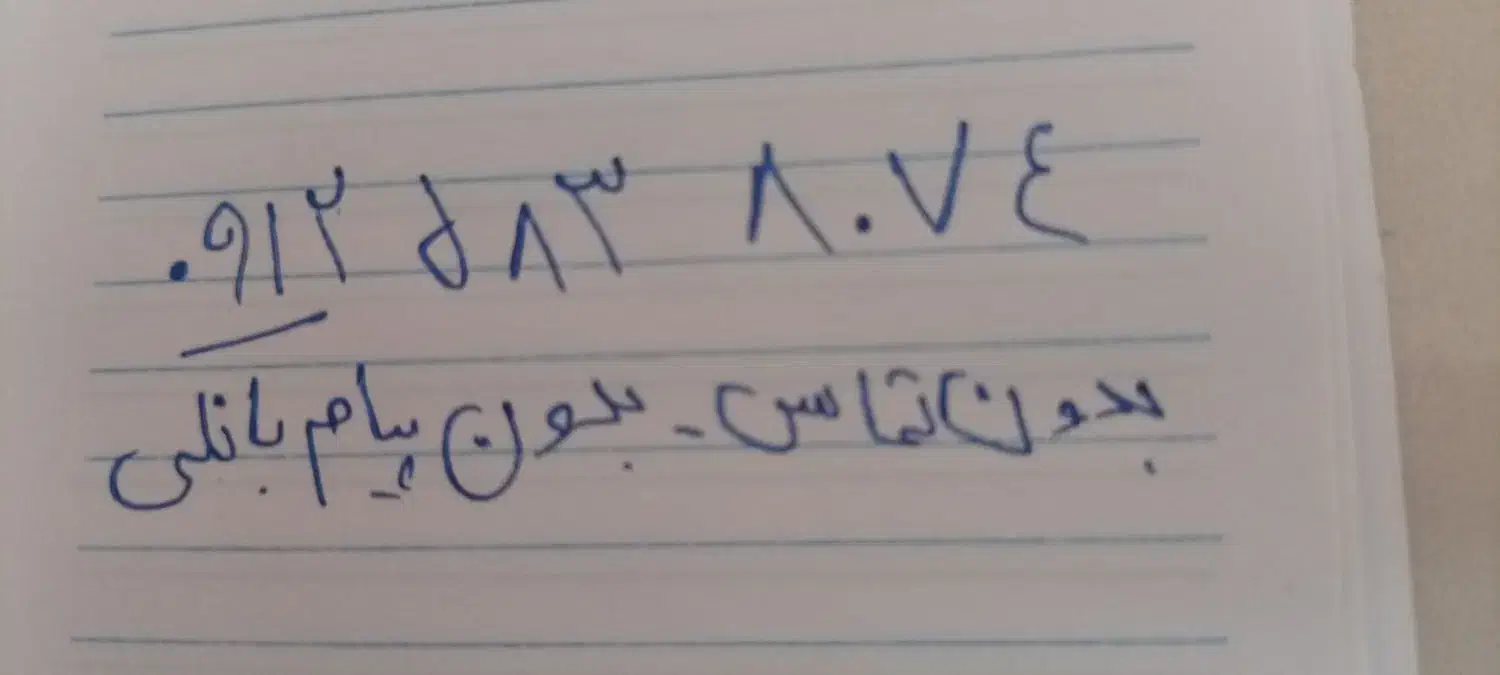 ۰۹۱۲ ۵۸۳ ۸۰۷۴
بدون تماس - بدون پیام بانکی